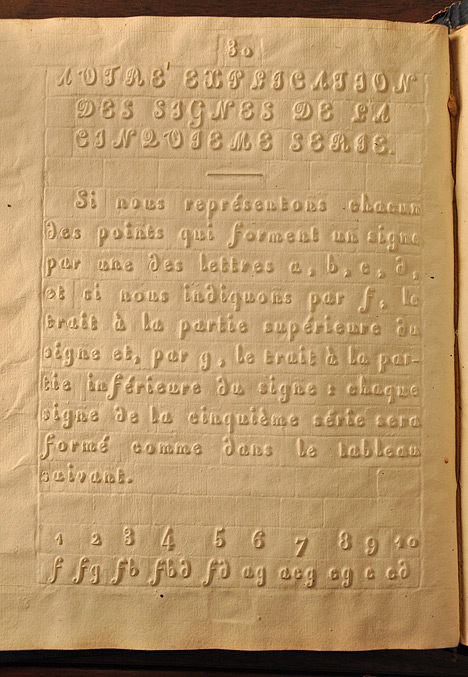 30
AUTRE EXPLICATION
DES SIGNES DE LA
CINQUIEME SERIE.
Si nous représentons chacun
des points qui forment un signe
par une des lettres a, b, c, d,
et si nous indiquons par f, le
trait à la partie supérieure du
signe et, par g, le trait à la par-
tie inférieure du signe : chaque
signe de la cinquième série sera
formé comme dans le tableau
suivant.
1 2 3 4 5 6 7 8 9 10
f fg fb fbd fd ag acg cg c cd